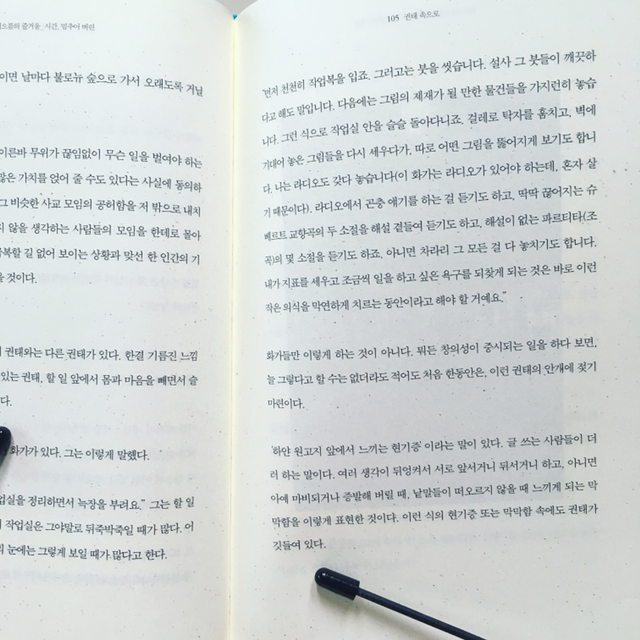 스름의 즐거움_시간, 멈추어 버린
이면 날마다 불로뉴 숲으로 가서 오래도록 거닐
이른바 무위가 끊임없이 무슨 일을 벌여야 하는
많은 가치를 얹어 줄 수도 있다는 사실에 동의하
그 비슷한 사교 모임의 공허함을 저 밖으로 내치
지 않을 생각하는 사람들의 모임을 한데로 몰아
복할 길 없어 보이는 상황과 맞선 한 인간의 기
것이다.
권태와는 다른 권태가 있다. 한결 기름진 느낌
있는 권태, 할 일 앞에서 몸과 마음을 빼면서 슬
다.
화가가 있다. 그는 이렇게 말했다.
업실을 정리하면서 늑장을 부려요.” 그는 할 일
작업실은 그야말로 뒤죽박죽일 때가 많다. 어
의 눈에는 그렇게 보일 때가 많다고 한다.
105 권태 속으로
“먼저 천천히 작업복을 입죠. 그러고는 붓을 씻습니다. 설사 그 붓들이 깨끗하
다고 해도 말입니다. 다음에는 그림의 제재가 될 만한 물건들을 가지런히 놓습
니다. 그런 식으로 작업실 안을 슬슬 돌아다니죠. 걸레로 탁자를 훔치고, 벽에
기대어 놓은 그림들을 다시 세우다가, 따로 어떤 그림을 뚫어지게 보기도 합니
다. 나는 라디오도 갖다 놓습니다(이 화가는 라디오가 있어야 하는데, 혼자 살
기 때문이다). 라디오에서 곤충 얘기를 하는 걸 듣기도 하고, 딱딱 끊어지는 슈
베르트 교향곡의 두 소절을 해설 곁들여 듣기도 하고, 해설이 없는 파르티타(조
곡)의 몇 소절을 듣기도 하죠. 아니면 차라리 그 모든 걸 다 놓치기도 합니다.
내가 지표를 세우고 조금씩 일을 하고 싶은 욕구를 되찾게 되는 것은 바로 이런
작은 의식을 막연하게 치르는 동안이라고 해야 할 거예요.”
화가들만 이렇게 하는 것이 아니다. 뭐든 창의성이 중시되는 일을 하다 보면,
늘 그렇다고 할 수는 없더라도 적어도 처음 한동안은, 이런 권태의 안개에 젖기
마련이다.
‘하얀 원고지 앞에서 느끼는 현기증’이라는 말이 있다. 글 쓰는 사람들이 더
러 하는 말이다. 여러 생각이 뒤엉켜서 서로 앞서거니 뒤서거니 하고, 아니면
아예 마비되거나 증발해 버릴 때, 낱말들이 떠오르지 않을 때 느끼게 되는 막
막함을 이렇게 표현한 것이다. 이런 식의 현기증 또는 막막함 속에도 권태가
깃들여 있다.